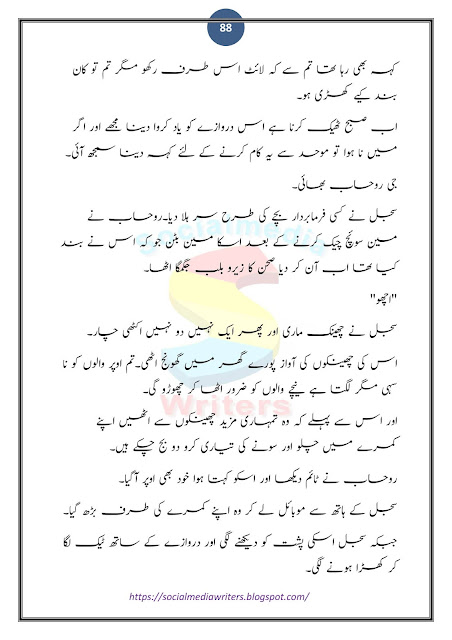 88
کہہ بھی رہا تھا تم سے کہ لائٹ اس طرف رکھو مگر تم تو کان
بند کیے کھڑی ہو۔
اب صبح ٹھیک کرنا ہے اس دروازے کو یاد کروا دینا مجھے اور اگر
میں نا ہوا تو موحد سے یہ کام کرنے کے لئے کہہ دینا سمجھ آئی۔
جی روحاب بھائی۔
سجل نے کسی فرمابردار بچے کی طرح سر ہلا دیا۔روحاب نے
مین سوئچ چیک کرنے کے بعد اسکا مین بٹن جو کہ اس نے بند
کیا تھا اب آن کر دیا صحن کا زیرو بلب جگمگا اٹھا۔
"اچھو"
سجل نے چھینک ماری اور پھر ایک نہیں دو نہیں اکٹھی چار۔
اس کی چھینکوں کی آواز پورے گھر میں گھونج اٹھی۔تم اوپر والوں کو نا
سہی مگر لگتا ہے نیچے والوں کو ضرور اٹھا کر چھوڑو گی۔
اور اس سے پہلے کہ وہ تمہاری مزید چھینکوں سے اٹھیں اپنے
کمرے میں چلو اور سونے کی تیاری کرو دو بج چکے ہیں۔
روحاب نے ٹائم دیکھا اور اسکو کہتا ہوا خود بھی اوپر آگیا۔
سجل کے ہاتھ سے موبائل لے کر وہ اپنے کمرے کی طرف بڑھ گیا۔
جبکہ سجل اسکی پشت کو دیکھنے لگی اور دروازے کے ساتھ ٹیک لگا
کر کھڑا ہونے لگی۔
Socialmedia
Writers
https://socialmediawriters.blogspot.com/